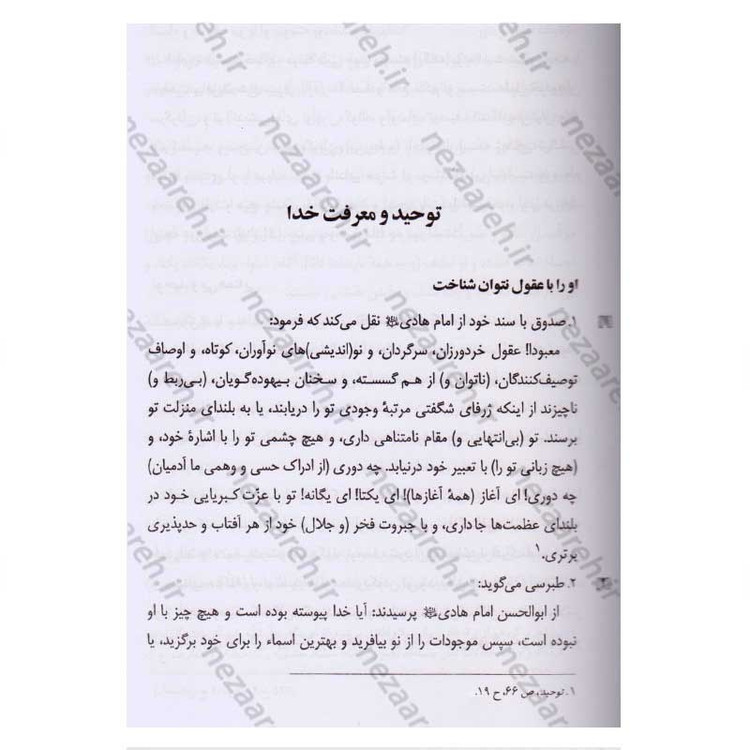 توحید و معرفت خدا
او را با عقول نتوان شناخت
۱. صدوق با سند خود از امام هادی نقل می‌کند که فرمود:
معبودا! عقول خردورزان، سرگردان، و نو(اندیشی)های نوآوران، کوتاه، و اوصاف
توصیف‌کنندگان، (ناتوان و) از هم گسسته، و سخنان بیهوده‌گویان، (بی‌ربط و)
ناچیزند از اینکه ژرفای شگفتی مرتبهٔ وجودی تو را دریابند، یا به بلندای منزلت تو
برسند. تو (بی‌انتهایی و) مقام نامتناهی داری، و هیچ چشمی تو را با اشارهٔ خود، و
(هیچ زبانی تو را) با تعبیر خود درنیابد. چه دوری (از ادراک حسی و وهمی ما آدمیان)
چه دوری! ای آغاز (همهٔ آغازها)! ای یکتا! ای یگانه! تو با عزّت کبریایی خود در
بلندای عظمت‌ها جا داری، و با جبروت فخر (و جلال) خود از هر آفتاب و حدپذیری
برتری.۱
۲. طبرسی می‌گوید:
از ابوالحسن امام هادی پرسیدند: آیا خدا پیوسته بوده است و هیچ چیز با او
نبوده است، سپس موجودات را از نو بیافرید و بهترین اسماء را برای خود برگزید، یا
۱. توحید، ص ۶۶، ح ۱۹.
nezaareh.ir